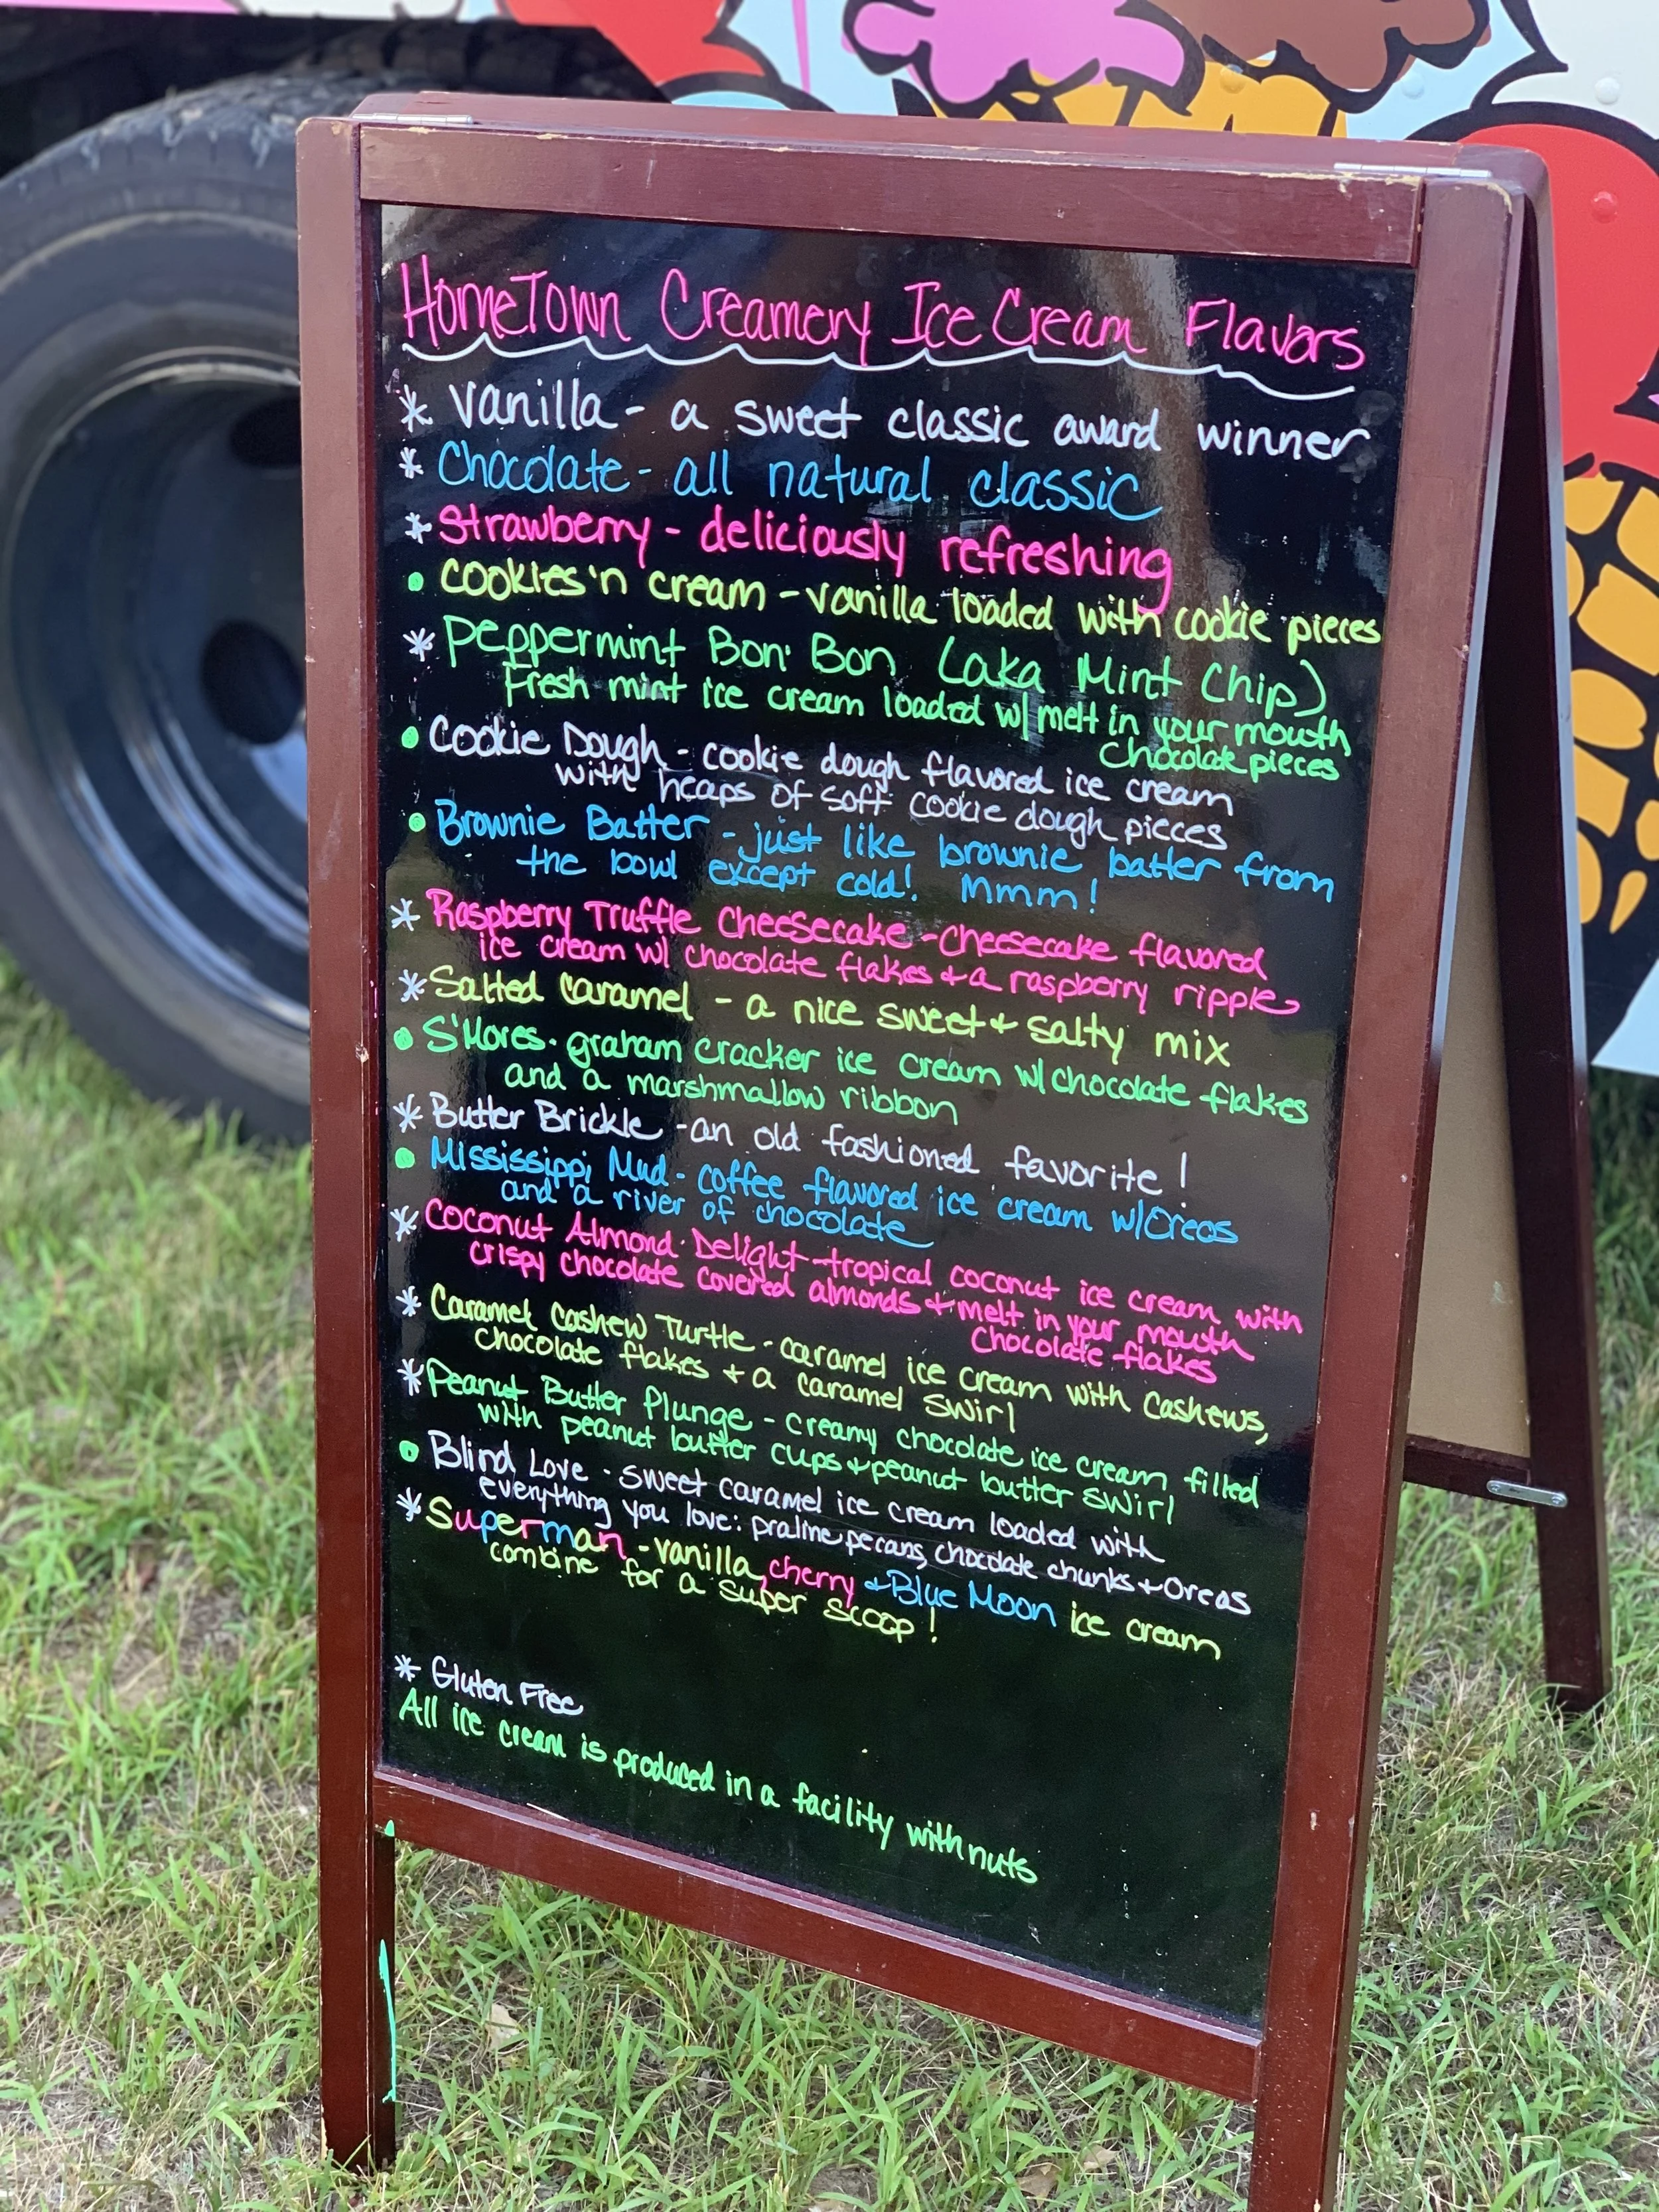 HomeTown Creamery Ice Cream Flavors
* Vanilla - a sweet classic award winner
* Chocolate - all natural classic
* Strawberry - deliciously refreshing
• Cookies 'n cream - vanilla loaded with cookie pieces
* Peppermint Bon Bon (aka Mint Chip)
Fresh mint ice cream loaded w/ melt in your mouth
Chocolate pieces
• Cookie Dough - cookie dough flavored ice cream
with heaps of soft cookie dough pieces
• Brownie Batter - just like brownie batter from
the bowl except cold! Mmm!
* Raspberry Truffle Cheesecake - cheesecake flavored
ice cream w/ chocolate flakes + a raspberry ripple
* Salted Caramel - a nice sweet + salty mix
• S'Mores - graham cracker ice cream w/ chocolate flakes
and a marshmallow ribbon
* Butter Brickle - an old fashioned favorite!
• Mississippi Mud - coffee flavored ice cream w/ Oreos
and a river of chocolate
* Coconut Almond Delight - tropical coconut ice cream with
crispy chocolate covered almonds + melt in your mouth
chocolate flakes
* Caramel Cashew Turtle - caramel ice cream with Cashews,
chocolate flakes + a caramel swirl
* Peanut Butter Plunge - creamy chocolate ice cream filled
with peanut butter cups + peanut butter swirl
• Blind Love - sweet caramel ice cream loaded with
everything you love: praline pecans, chocolate chunks + Oreos
* Superman - vanilla, cherry + Blue Moon ice cream
combine for a super scoop!
* Gluten Free
All ice cream is produced in a facility with nuts